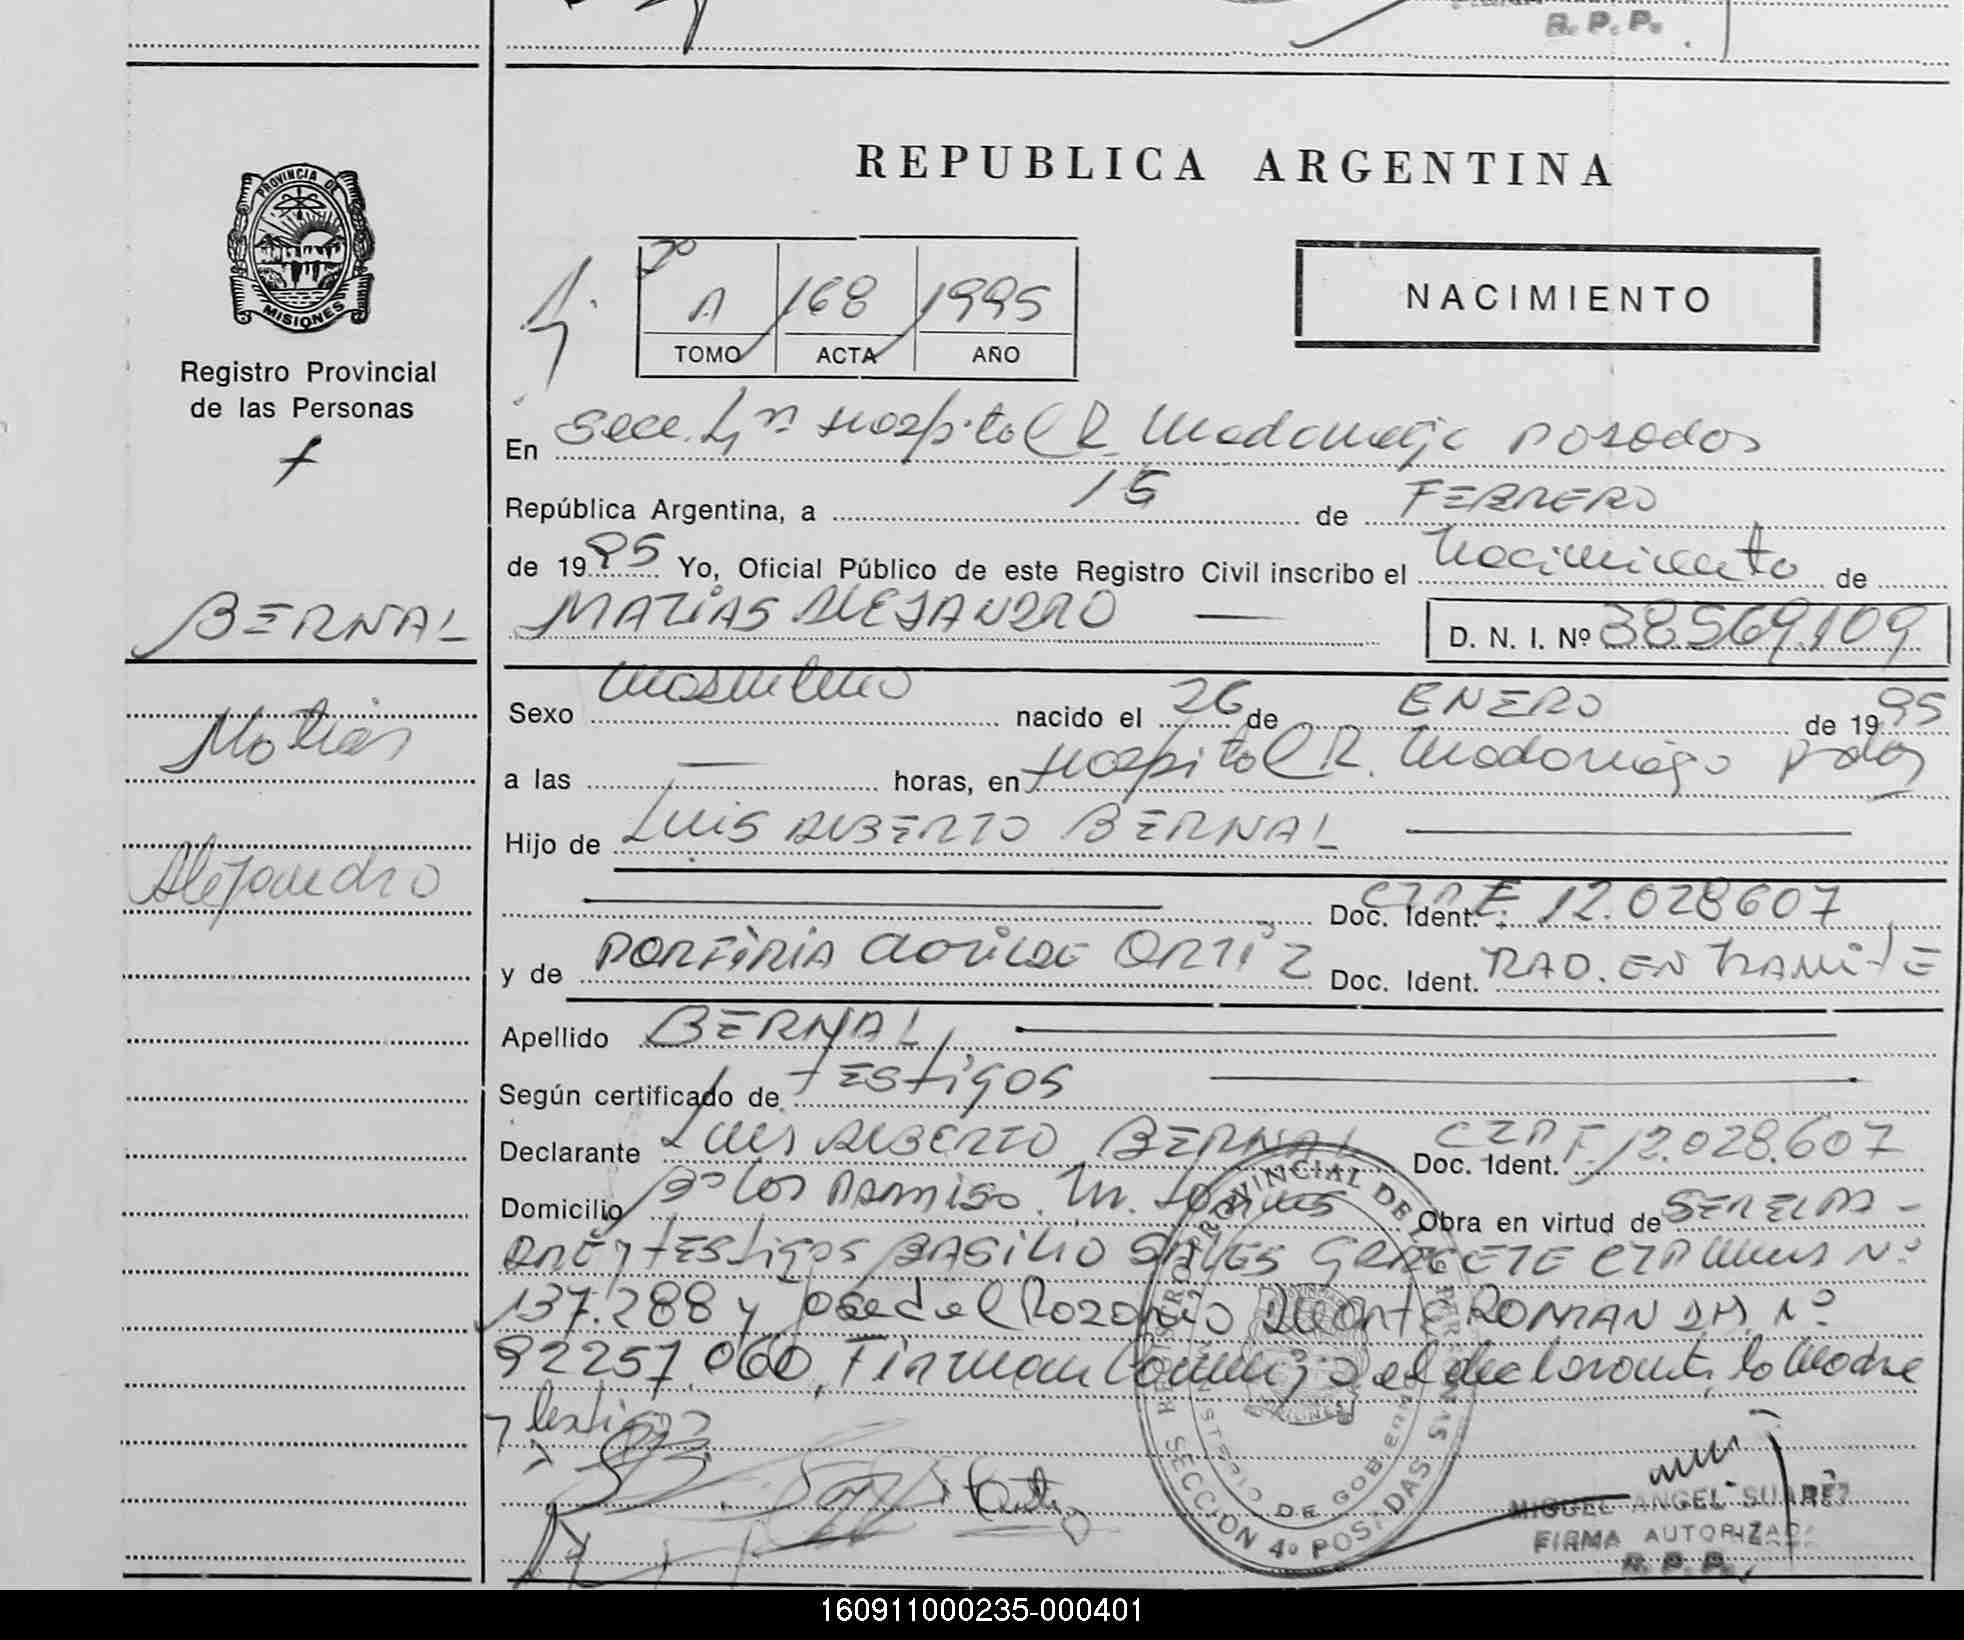 R. P. P.
PROVINCIA DE
MISIONES
Registro Provincial
de las Personas
BERNAL
Matias
Alejandro
REPUBLICA ARGENTINA
7º
A 168 1995
TOMO ACTA AÑO
NACIMIENTO
En Secc. 4ª Hospital R. Madariaga Posadas
República Argentina, a 15 de FEBRERO
de 1995 Yo, Oficial Público de este Registro Civil inscribo el Nacimiento de
MATIAS ALEJANDRO — D. N. I. Nº 38.569.109
Sexo Masculino nacido el 26 de ENERO de 1995
a las — horas, en Hospital R. Madariaga Pdas
Hijo de LUIS ALBERTO BERNAL
Doc. Ident. 12.028607
y de PORFIRIA CLOTILDE ORTIZ Doc. Ident. RAD. EN TRAMITE
Apellido BERNAL
Según certificado de testigos
Declarante LUIS ALBERTO BERNAL Doc. Ident. 12.028.607
Domicilio Bº Los Obra en virtud de
y testigos BASILIO Nº
137.288 y José del Rozario ROMAN Nº
92257.060, Firman Conmigo el declarante, la Madre
y testigos
REGISTRO PROVINCIAL DE LAS PERSONAS
MINISTERIO DE GOBIERNO
MISIONES
SECCION 4º POSADAS
MIGUEL ANGEL SUAREZ
FIRMA AUTORIZADA
R. P. P.
160911000235-000401